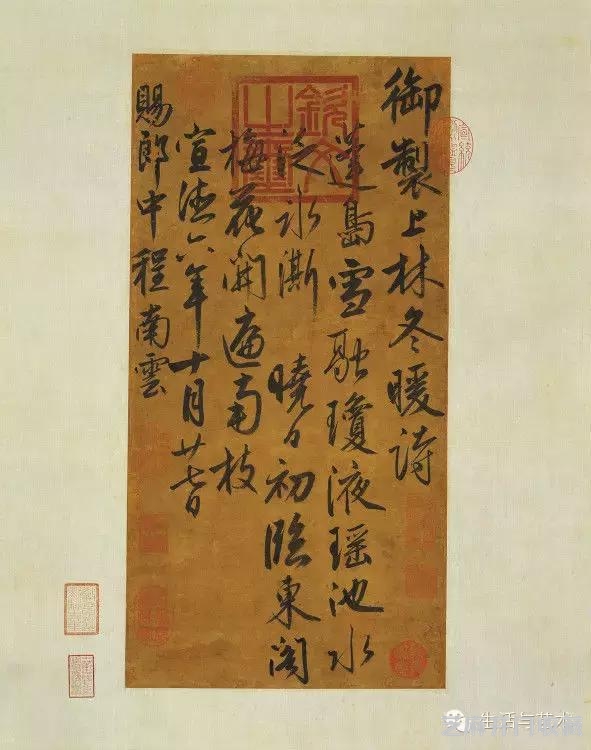 御製上林冬暖詩
蓬島雪融瓊液瑶池水
泛冰澌 曉日初臨東閣
梅花開遍南枝
宣德六年十月廿七日
賜郎中程南雲
生活与艺术